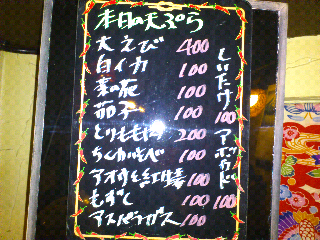 本日の天ぷら
大えび 400
白イカ 100
菜の花 100
茄子 100
とりもも 200
100
アオサと紅生姜 100
もずく 100
アスパラガス 100
しいたけ 100
アボカド 100